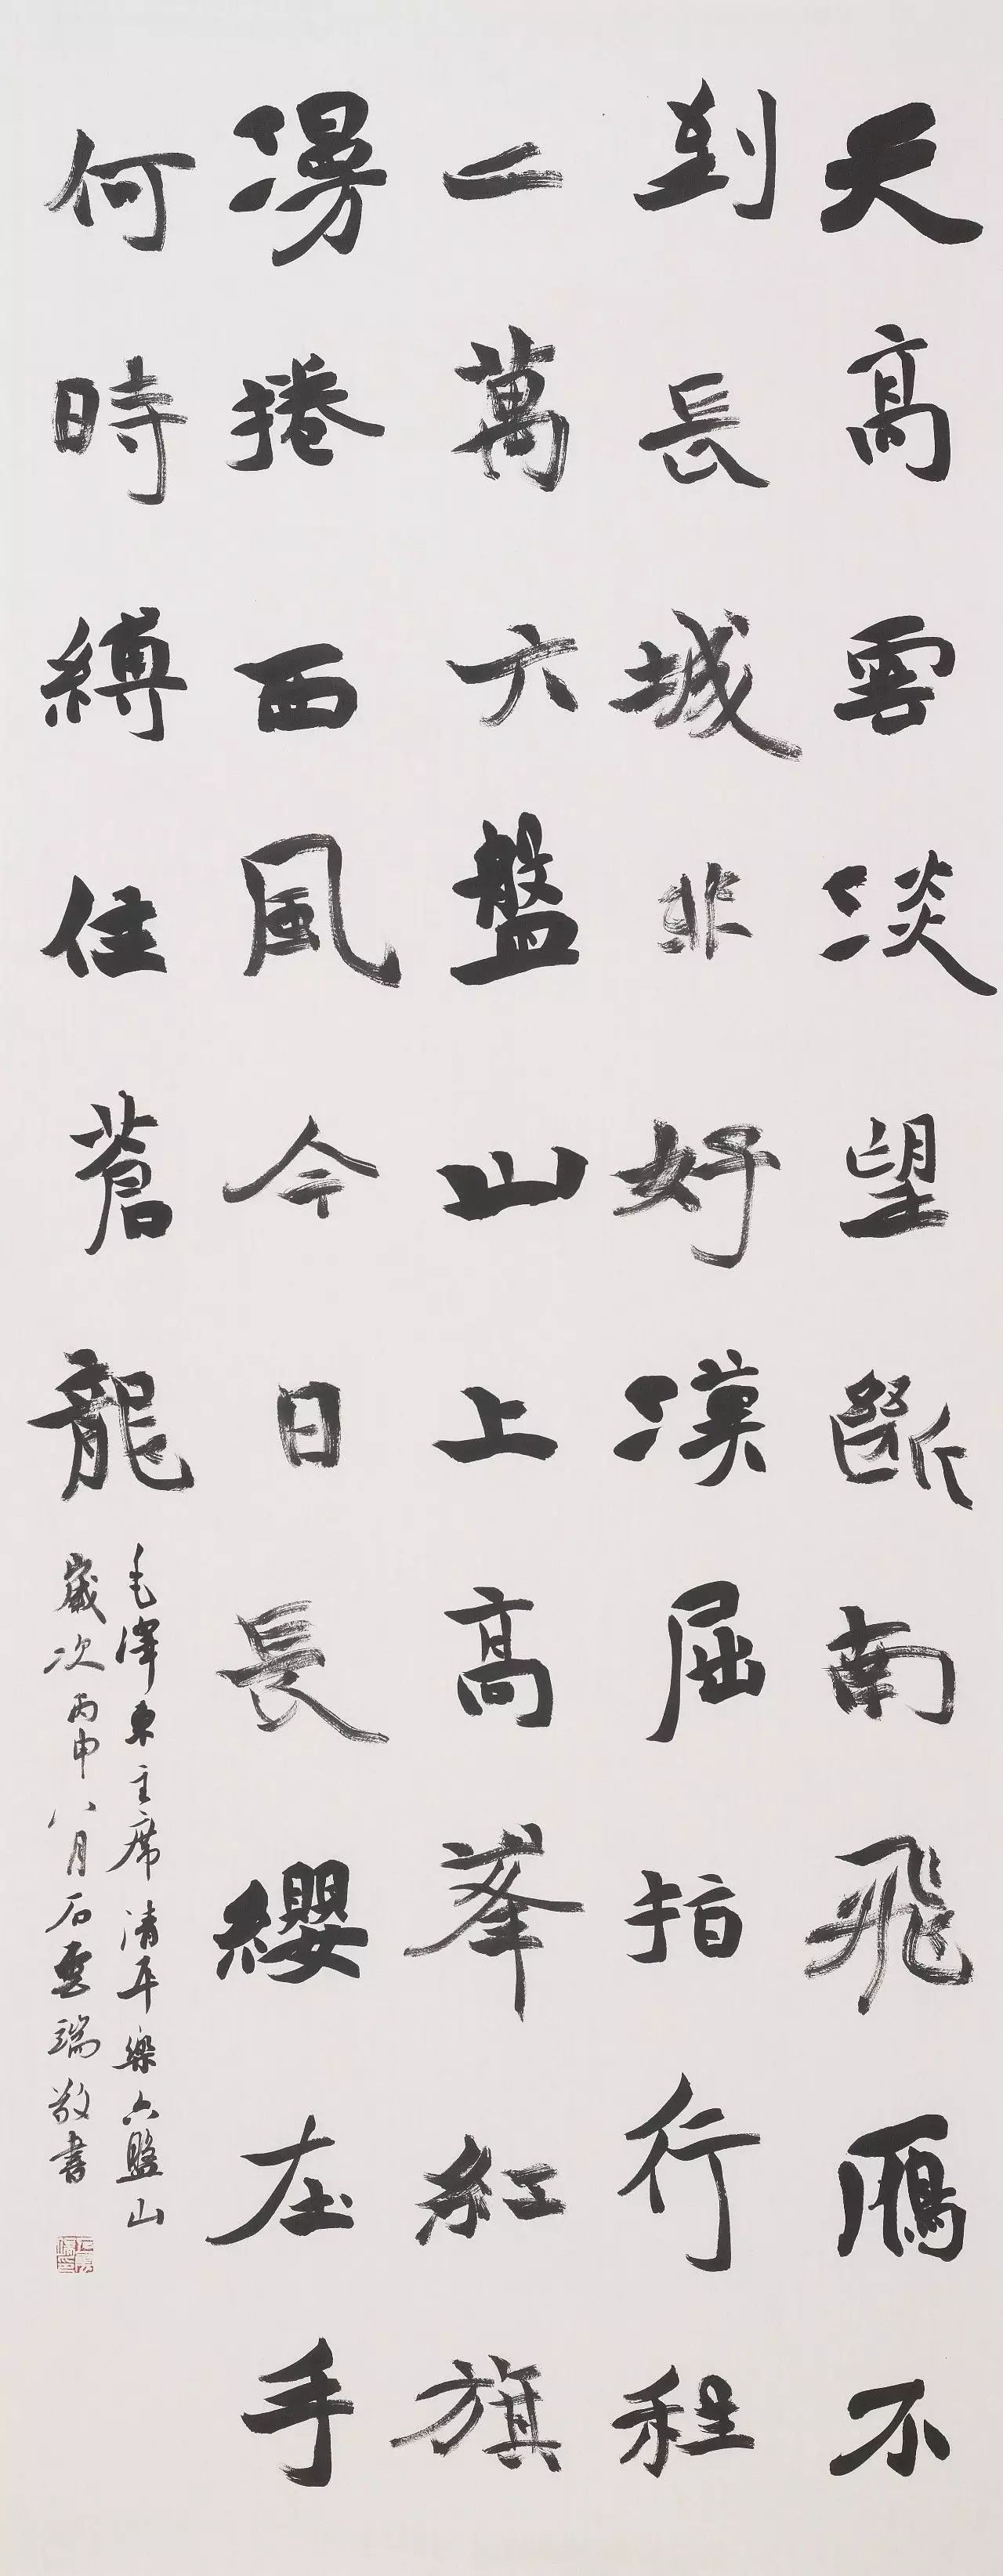 天高雲淡望斷南飛鴈不
到長城非好漢屈指行程
二萬六盤山上高峯紅旗
漫捲西風今日長纓在手
何時縛住蒼龍
毛澤東主席清平樂六盤山
歲次丙申八月石雲端敬書